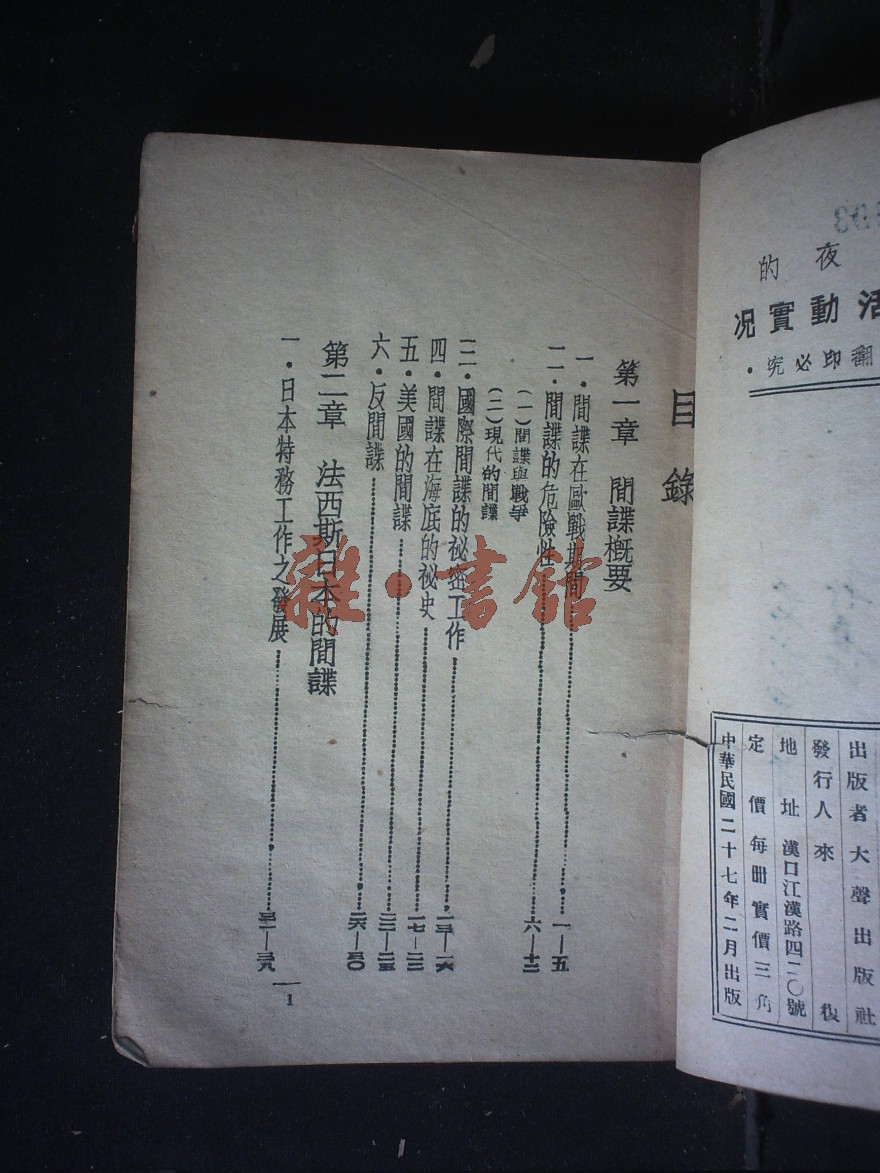 夜的
活動實況
翻印必究．
出版者大聲出版社
發行人來復
地址漢口江漢路四二〇號
定價每册實價三角
中華民國二十七年二月出版
目錄
第一章 間諜概要
一．間諜在歐戰期間………一—五
二．間諜的危險性………六—十二
(一)間諜與戰爭
(二)現代的間諜
三．國際間諜的祕密工作………一三—一六
四．間諜在海底的祕史………一七—二二
五．美國的間諜………二二—二五
六．反間諜………二六—三〇
第二章 法西斯日本的間諜
一．日本特務工作之發展………三一—三九
1
雜·書館